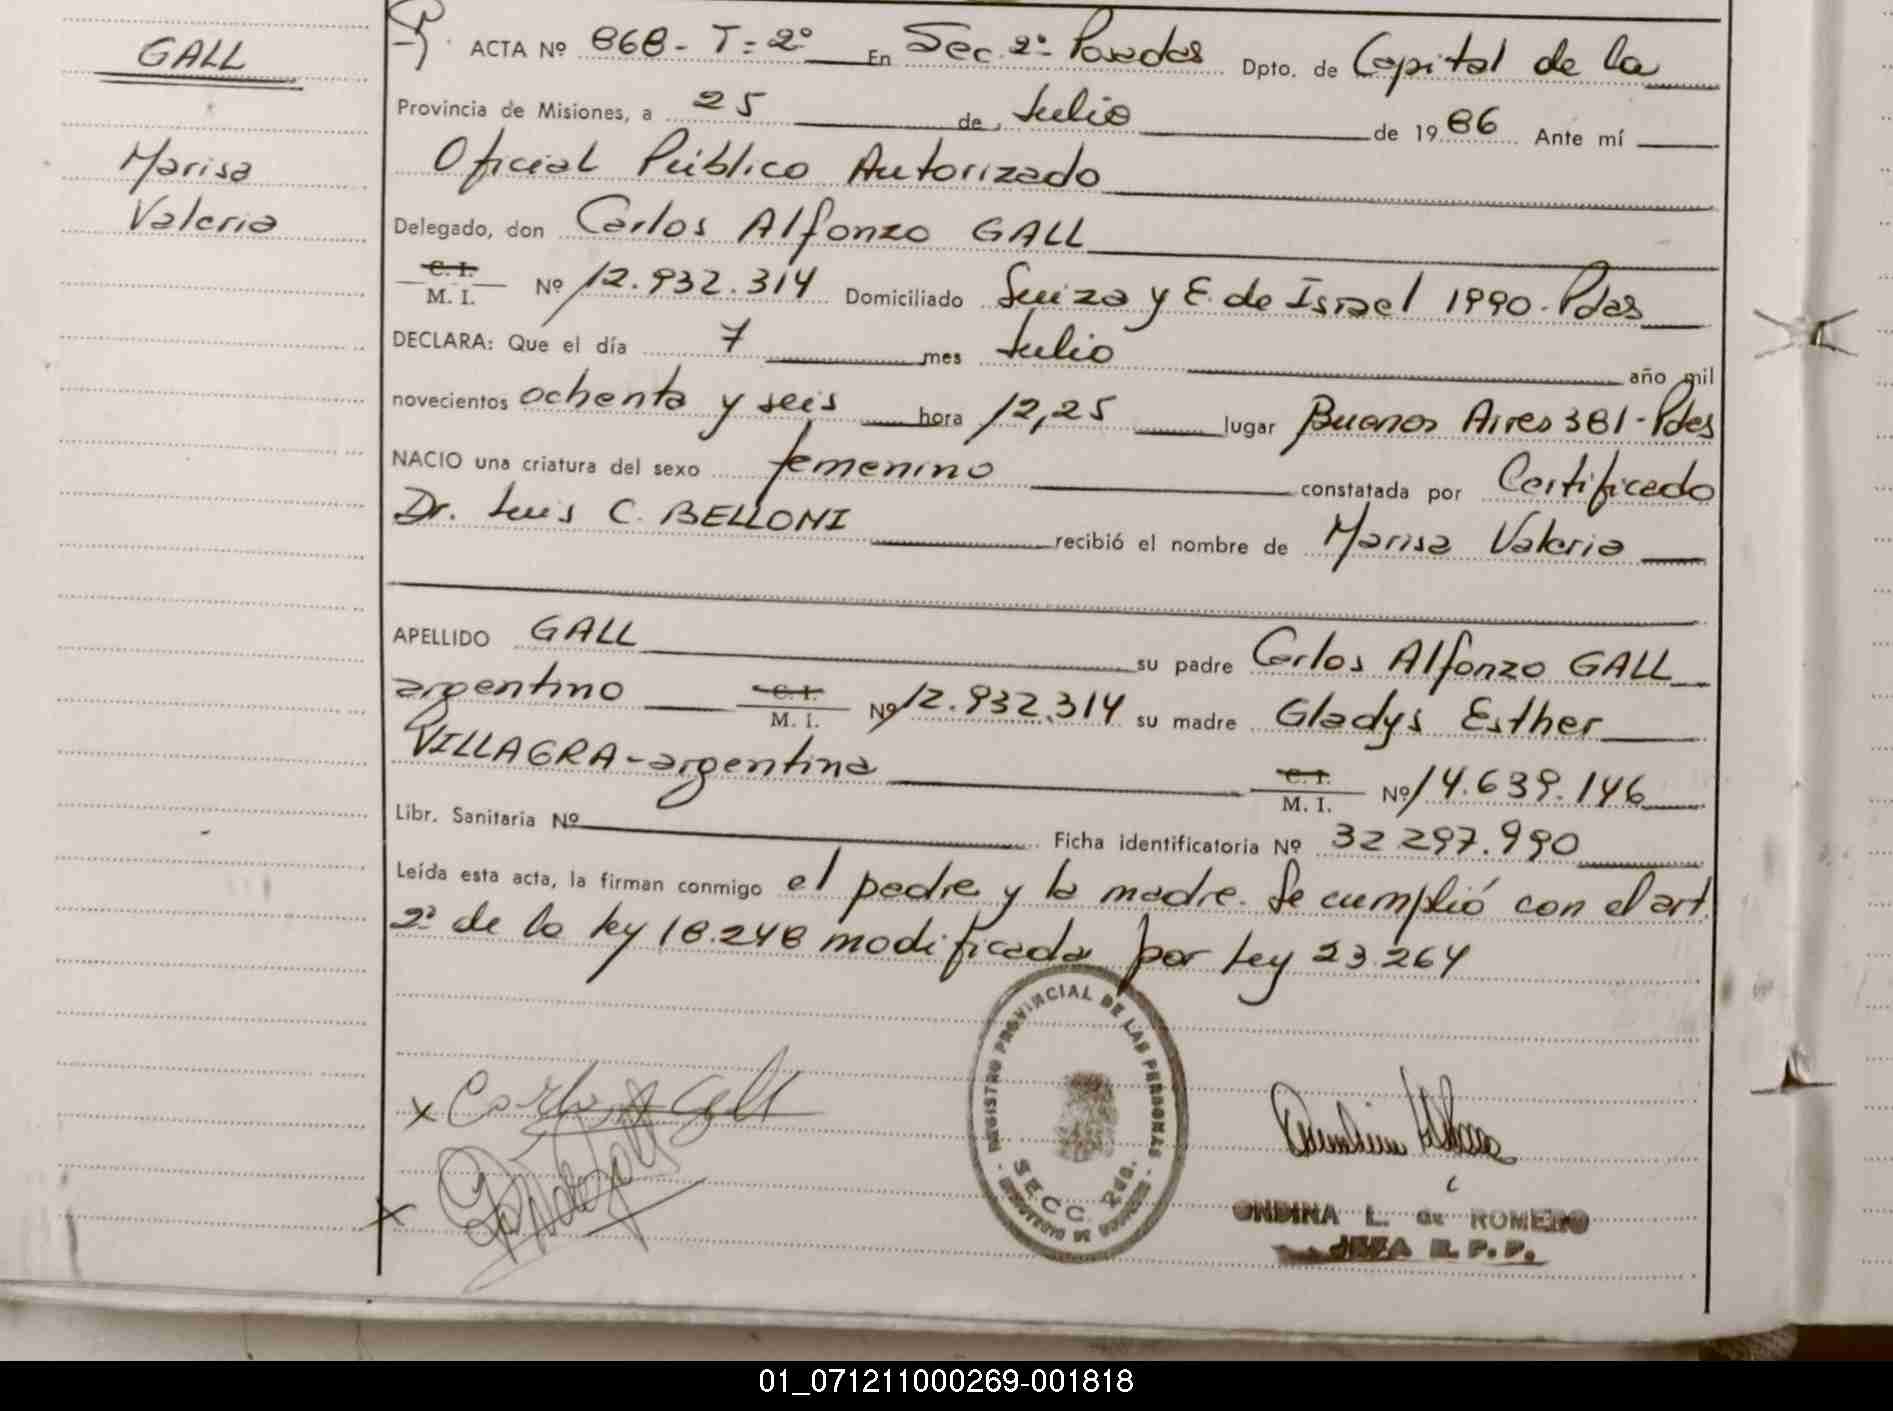 GALL
Marisa
Valeria
ACTA Nº 868 - T = 2º En Sec. 2º Posadas Dpto. de Capital de la
Provincia de Misiones, a 25 de Julio de 1986 Ante mí
Oficial Público Autorizado
Delegado, don Carlos Alfonzo GALL
C. I.
M. I. Nº 12.932.314 Domiciliado Suiza y E. de Israel 1990 - Pdas
DECLARA: Que el día 7 mes Julio año mil
novecientos ochenta y seis hora 12,25 lugar Buenos Aires 381 - Pdas
NACIO una criatura del sexo femenino constatada por Certificado
Dr. Luis C. BELLONI recibió el nombre de Marisa Valeria
APELLIDO GALL su padre Carlos Alfonzo GALL
argentino C. I. M. I. Nº 12.932.314 su madre Gladys Esther
VILLAGRA - argentina C. I. M. I. Nº 14.639.146
Libr. Sanitaria Nº Ficha identificatoria Nº 32 297.990
Leída esta acta, la firman conmigo el padre y la madre. Se cumplió con el art.
2º de la ley 18.248 modificada por ley 23 264
REGISTRO PROVINCIAL DE LAS PERSONAS
SECC. 2da.
MINISTERIO DE GOBIERNO
x Carlos Gall
x
ONDINA L. de ROMERO
JEFA R. P. P.
01_071211000269-001818